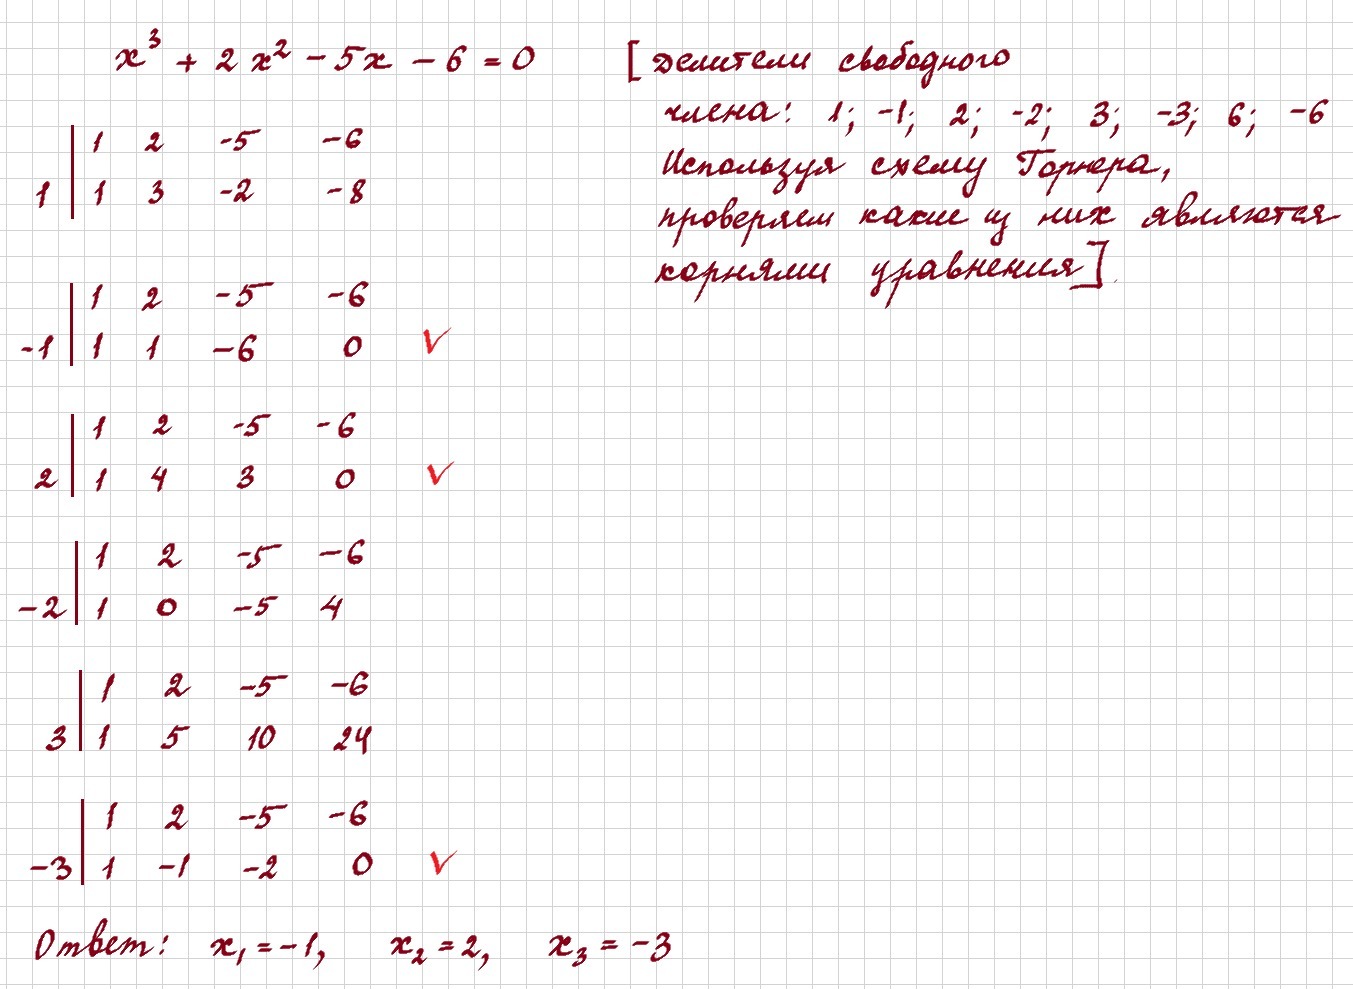 x³ + 2x² - 5x - 6 = 0
[Делители свободного
члена: 1; -1; 2; -2; 3; -3; 6; -6
Используя схему Горнера,
проверяем какие из них являются
корнями уравнения]
1 2 -5 -6
1 | 1 3 -2 -8
1 2 -5 -6
-1 | 1 1 -6 0 ✓
1 2 -5 -6
2 | 1 4 3 0 ✓
1 2 -5 -6
-2 | 1 0 -5 4
1 2 -5 -6
3 | 1 5 10 24
1 2 -5 -6
-3 | 1 -1 -2 0 ✓
Ответ: x₁ = -1, x₂ = 2, x₃ = -3